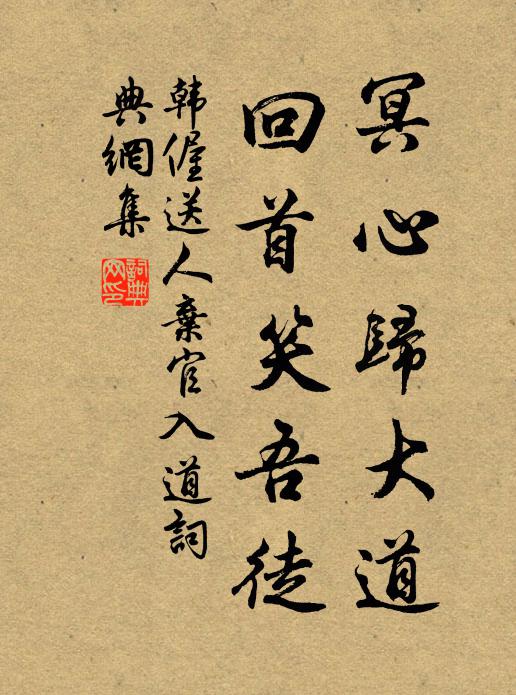 冥心歸大道
回首笑吾徒
韩偓送人棄官入道詞
典網集
詞典网印